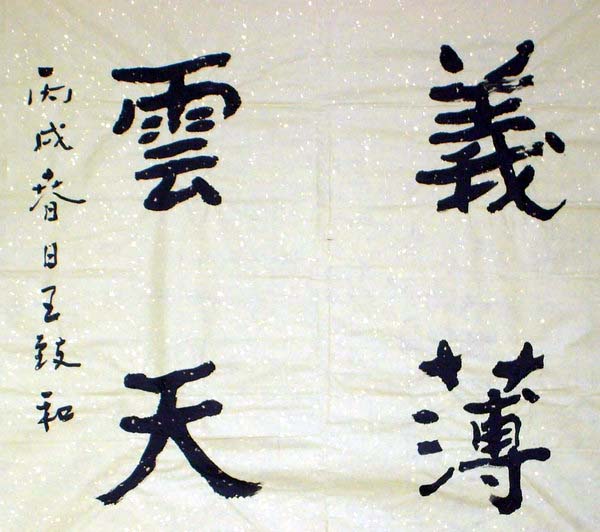 義薄
雲天
丙戌春日王致和